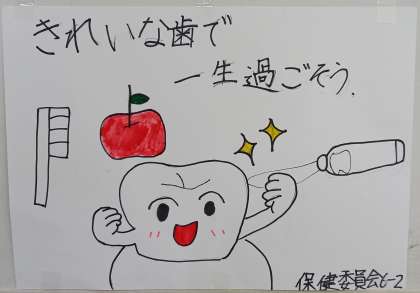 きれいな歯で
一生過ごそう.
保健委員会6-2